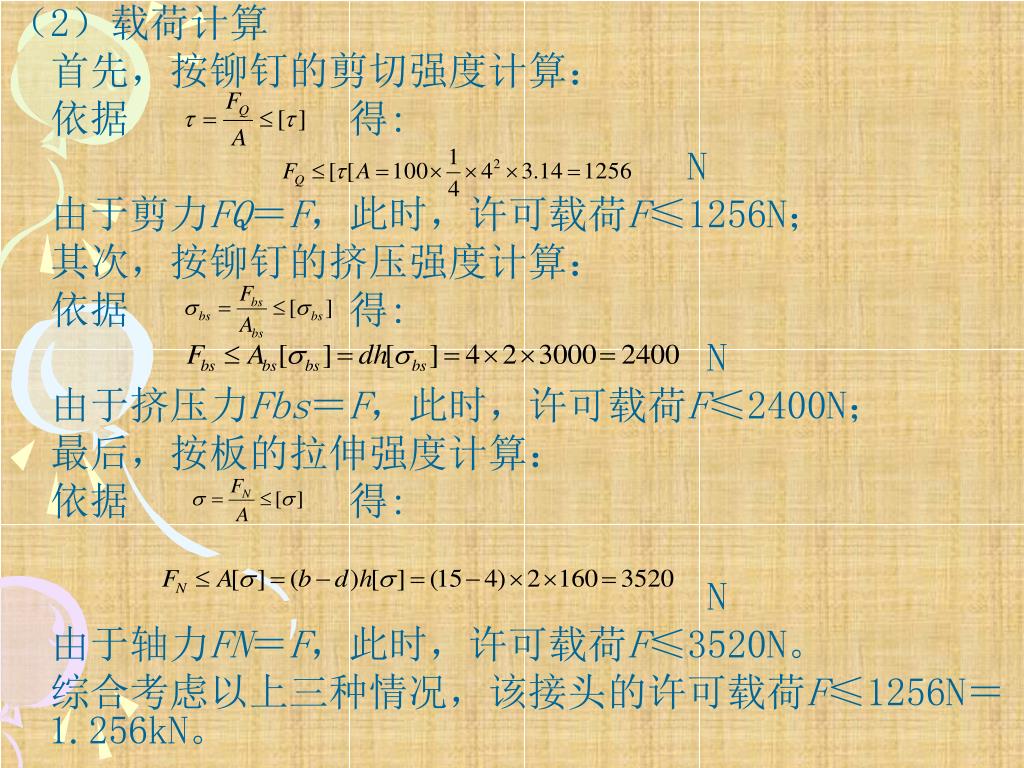 （2）载荷计算
首先，按铆钉的剪切强度计算：
依据 τ = F_Q/A ≤ [τ] 得：
F_Q ≤ [τ[A = 100 × 1/4 × 4² × 3.14 = 1256 N
由于剪力FQ＝F，此时，许可载荷F≤1256N；
其次，按铆钉的挤压强度计算：
依据 σ_bs = F_bs/A_bs ≤ [σ_bs] 得：
F_bs ≤ A_bs[σ_bs] = dh[σ_bs] = 4 × 2 × 3000 = 2400 N
由于挤压力Fbs＝F，此时，许可载荷F≤2400N；
最后，按板的拉伸强度计算：
依据 σ = F_N/A ≤ [σ] 得：
F_N ≤ A[σ] = (b − d)h[σ] = (15 − 4) × 2 × 160 = 3520 N
由于轴力FN＝F，此时，许可载荷F≤3520N。
综合考虑以上三种情况，该接头的许可载荷F≤1256N＝
1.256kN。